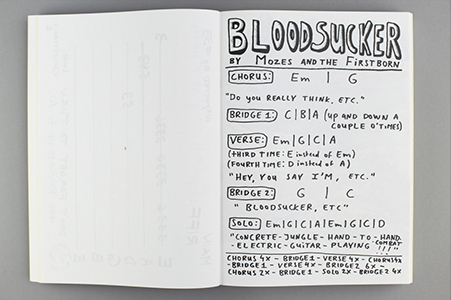 BLOODSUCKER
BY MOZES AND THE FIRSTBORN
CHORUS: Em | G
"DO YOU REALLY THINK, ETC."
BRIDGE 1: C|B|A (UP AND DOWN A
COUPLE O'TIMES)
VERSE: Em|G|C|A
(THIRD TIME: E instead of Em)
(FOURTH TIME: D instead of A)
"HEY, YOU SAY I'M, ETC."
BRIDGE 2: G | C
"BLOODSUCKER, ETC"
SOLO: Em|G|C|A|Em|G|C|D
"CONCRETE-JUNGLE-HAND-TO-HAND-
COMBAT
-ELECTRIC-GUITAR-PLAYING
CHORUS 4X - BRIDGE 1 - VERSE 4X - CHORUS 4X
- BRIDGE 1 - VERSE 4X - BRIDGE 2 6X -
CHORUS 2X - BRIDGE 1 - SOLO 2X - BRIDGE 2 4X